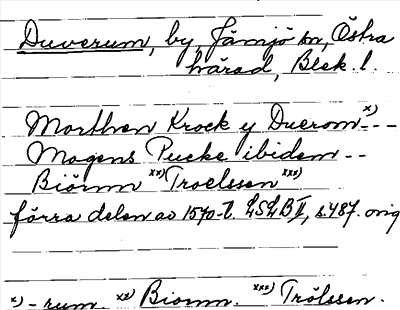 Duverum, by, Jämjö sn, Östra
härad, Blek. l.
Morthen Krock y Duerom x) - -
Mogens Pucke ibidem - -
Biörnn xx) Troelssen xxx)
förra delen av 1570-t. LSLB II, s. 487. orig
x) - rum. xx) Biornn. xxx) Trölssen.